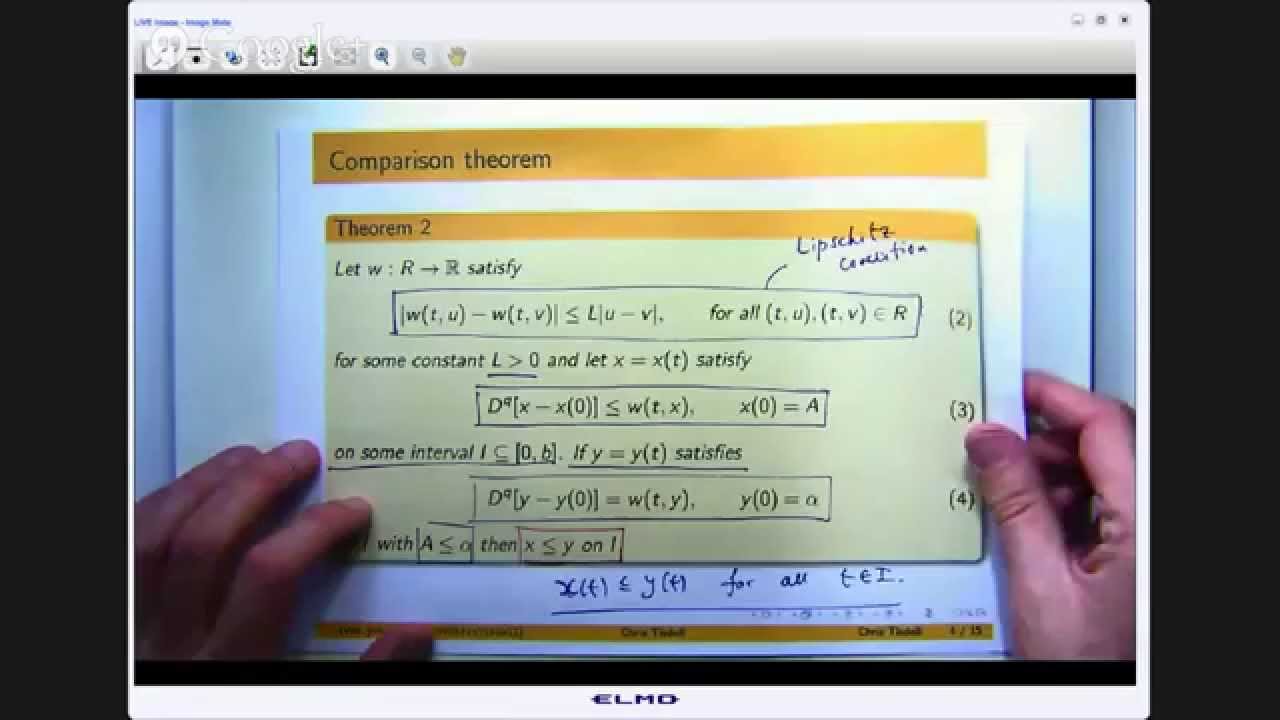 LIVE Image - Image Mate
Google+
Comparison theorem
Theorem 2
Lipschitz
condition
Let w : R → ℝ satisfy
|w(t, u) − w(t, v)| ≤ L|u − v|, for all (t, u), (t, v) ∈ R (2)
for some constant L > 0 and let x = x(t) satisfy
D^q[x − x(0)] ≤ w(t, x), x(0) = A (3)
on some interval I ⊆ [0, b]. If y = y(t) satisfies
D^q[y − y(0)] = w(t, y), y(0) = α (4)
with A ≤ α then x ≤ y on I.
x(t) ≤ y(t) for all t ∈ I.
Chris Tisdell Chris Tisdell / 15
ELMO